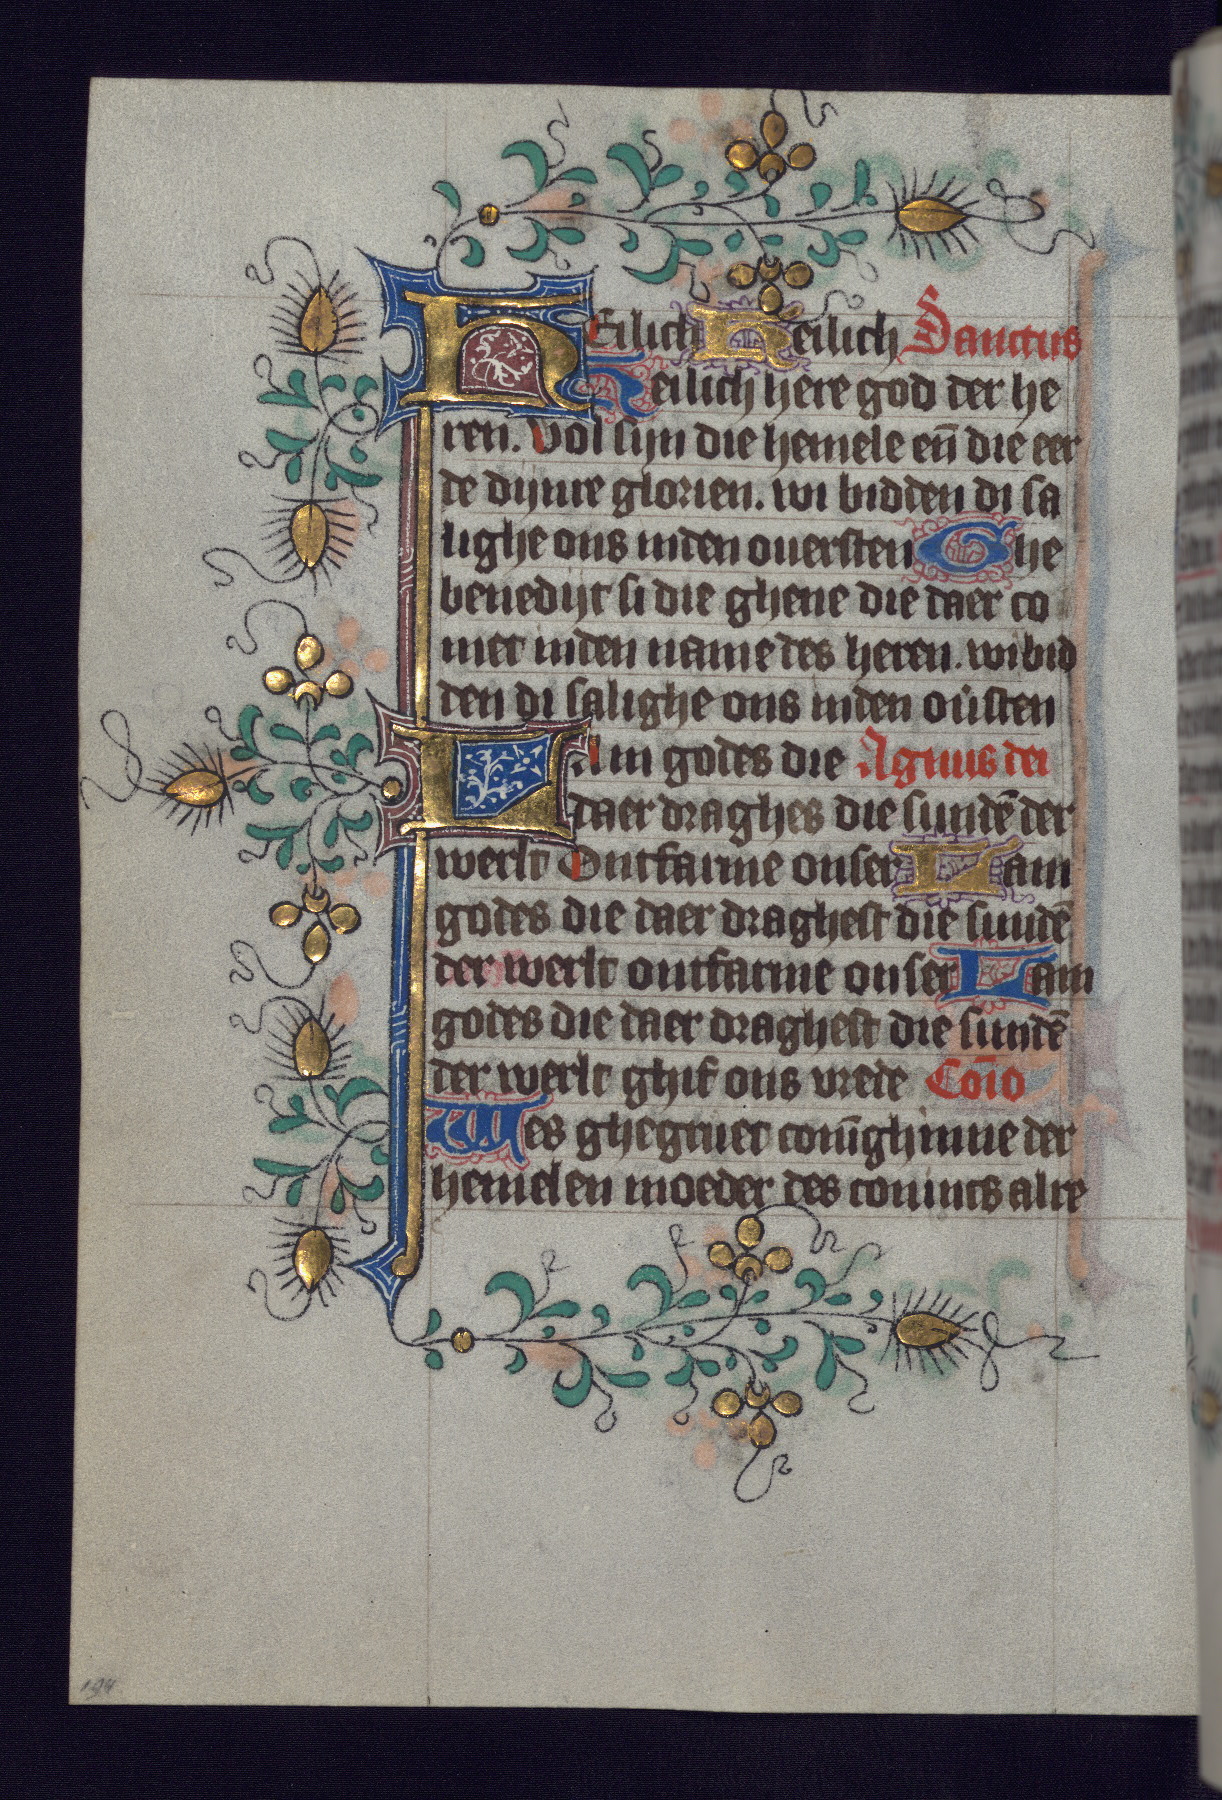 HEilich Heilich Sanctus
Heilich here god der he
ren. Vol sijn die hemele en̄ die eer
de dijnre glorien. wi bidden di sa
lighe ons inden ouersten Ghe
benedijt si die ghene die daer co
met inden name des heren. wi bid
den di salighe ons inden ou̇sten
LAm godes die Agnus dei
daer draghes die sundē der
werlt Ontfarme onser Lam
godes die daer draghest die sundē
der werlt ontfarme onser Lam
godes die daer draghest die sundē
der werlt ghif ons vrede Cōio
Wes ghegruet conīghinne der
hemelen moeder des conincs alre
194